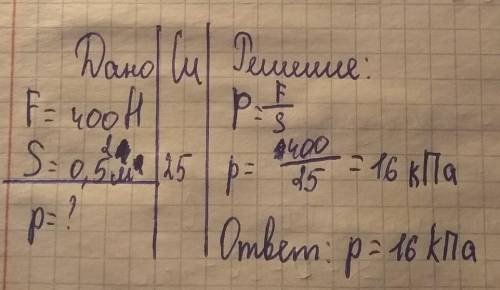 Дано СИ Решение:
F = 400 Н p = F/S
S = 0,5 м² 25 p = 400/25 = 16 кПа
p = ?
Ответ: p = 16 кПа